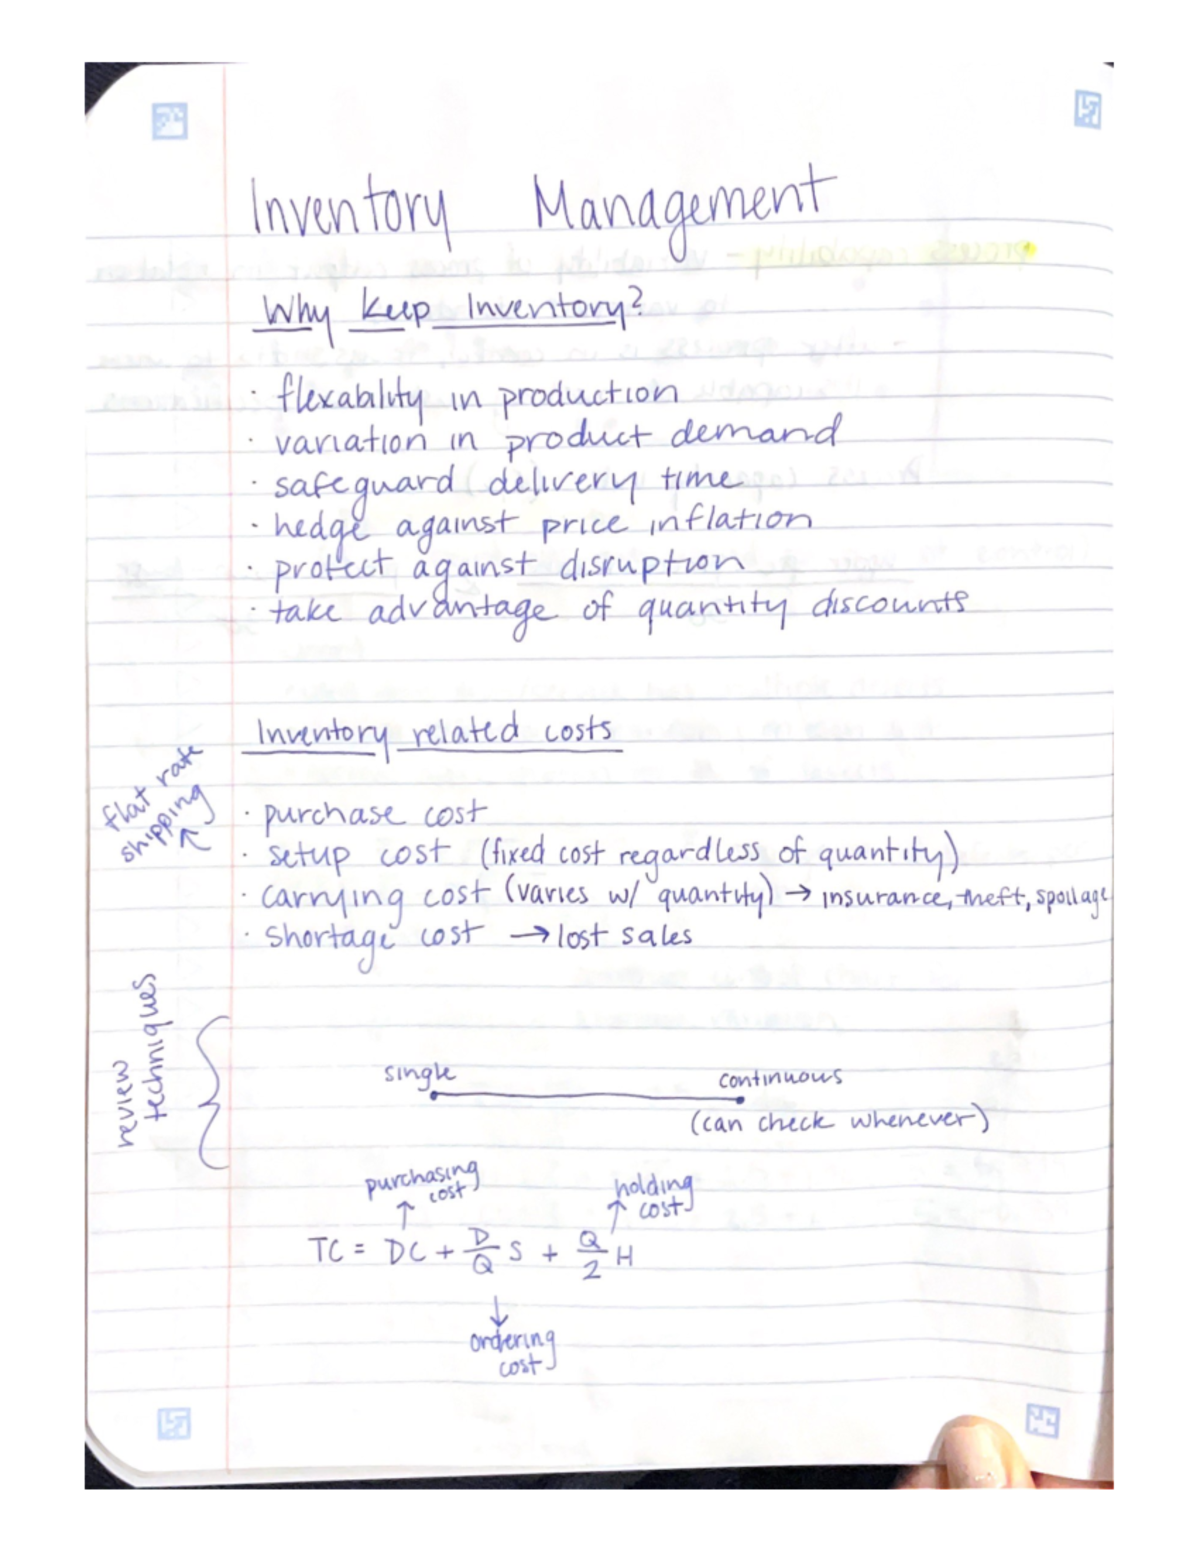 Inventory Management
Why Keep Inventory?
· flexability in production
· variation in product demand
· safeguard delivery time
· hedge against price inflation
· protect against disruption
· take advantage of quantity discounts
Inventory related costs
flat rate
shipping
· purchase cost
· setup cost (fixed cost regardless of quantity)
· carrying cost (varies w/ quantity) → insurance, theft, spoilage
· shortage cost → lost sales
review
techniques
single
continuous
(can check whenever)
purchasing
cost
holding
cost
TC = DC + D/Q S + Q/2 H
ordering
cost